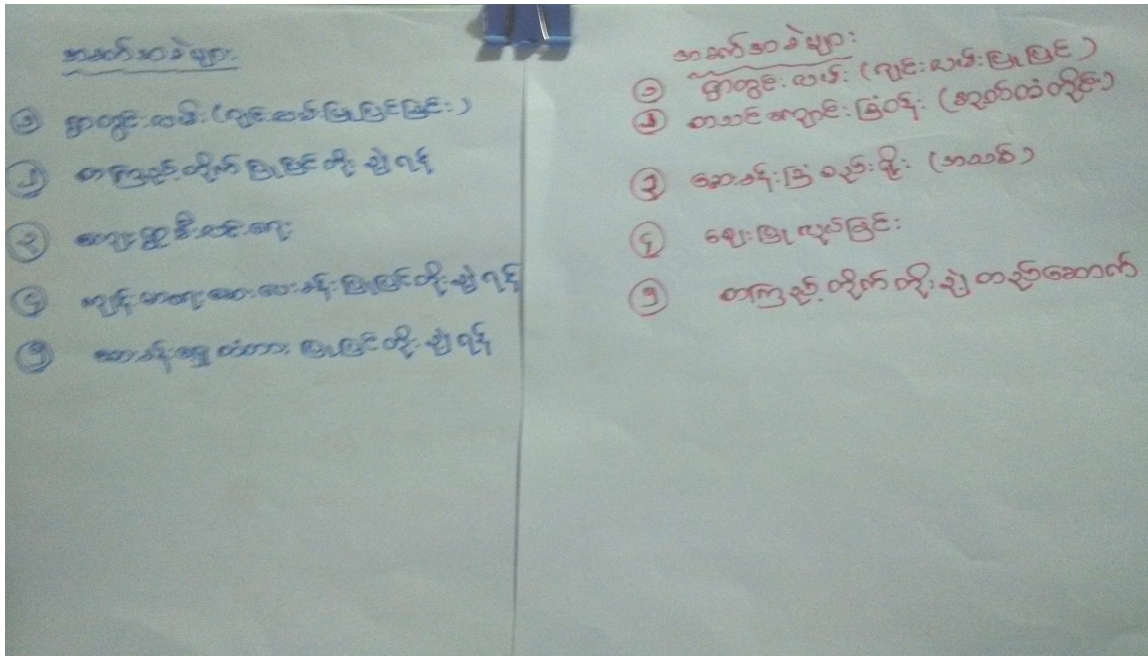 အခက်အခဲများ
၁ ရွာတွင်းလမ်း (လျင်းလမ်းပြုပြင်ခြင်း)
၂ စာကြည့်တိုက်ပြုပြင်တိုးချဲ့ရန်
၃ ကျေးရွာမီးလင်းရေး
၄ ကျန်းမာရေးဆေးပေးခန်းပြုပြင်တိုးချဲ့ရန်
၅ ဆေးခန်းရှေ့တံတား ပြုပြင်တိုးချဲ့ရန်
အခက်အခဲများ
၁ ရွာတွင်းလမ်း (လျင်းလမ်းပြုပြင်)
၂ စာသင်ကျောင်းခြံဝန်း (အုတ်တံတိုင်း)
၃ ဆေးခန်းခြံစည်းရိုး (အသစ်)
၄ ဈေးပြုလုပ်ခြင်း
၅ စာကြည့်တိုက်တိုးချဲ့တည်ဆောက်